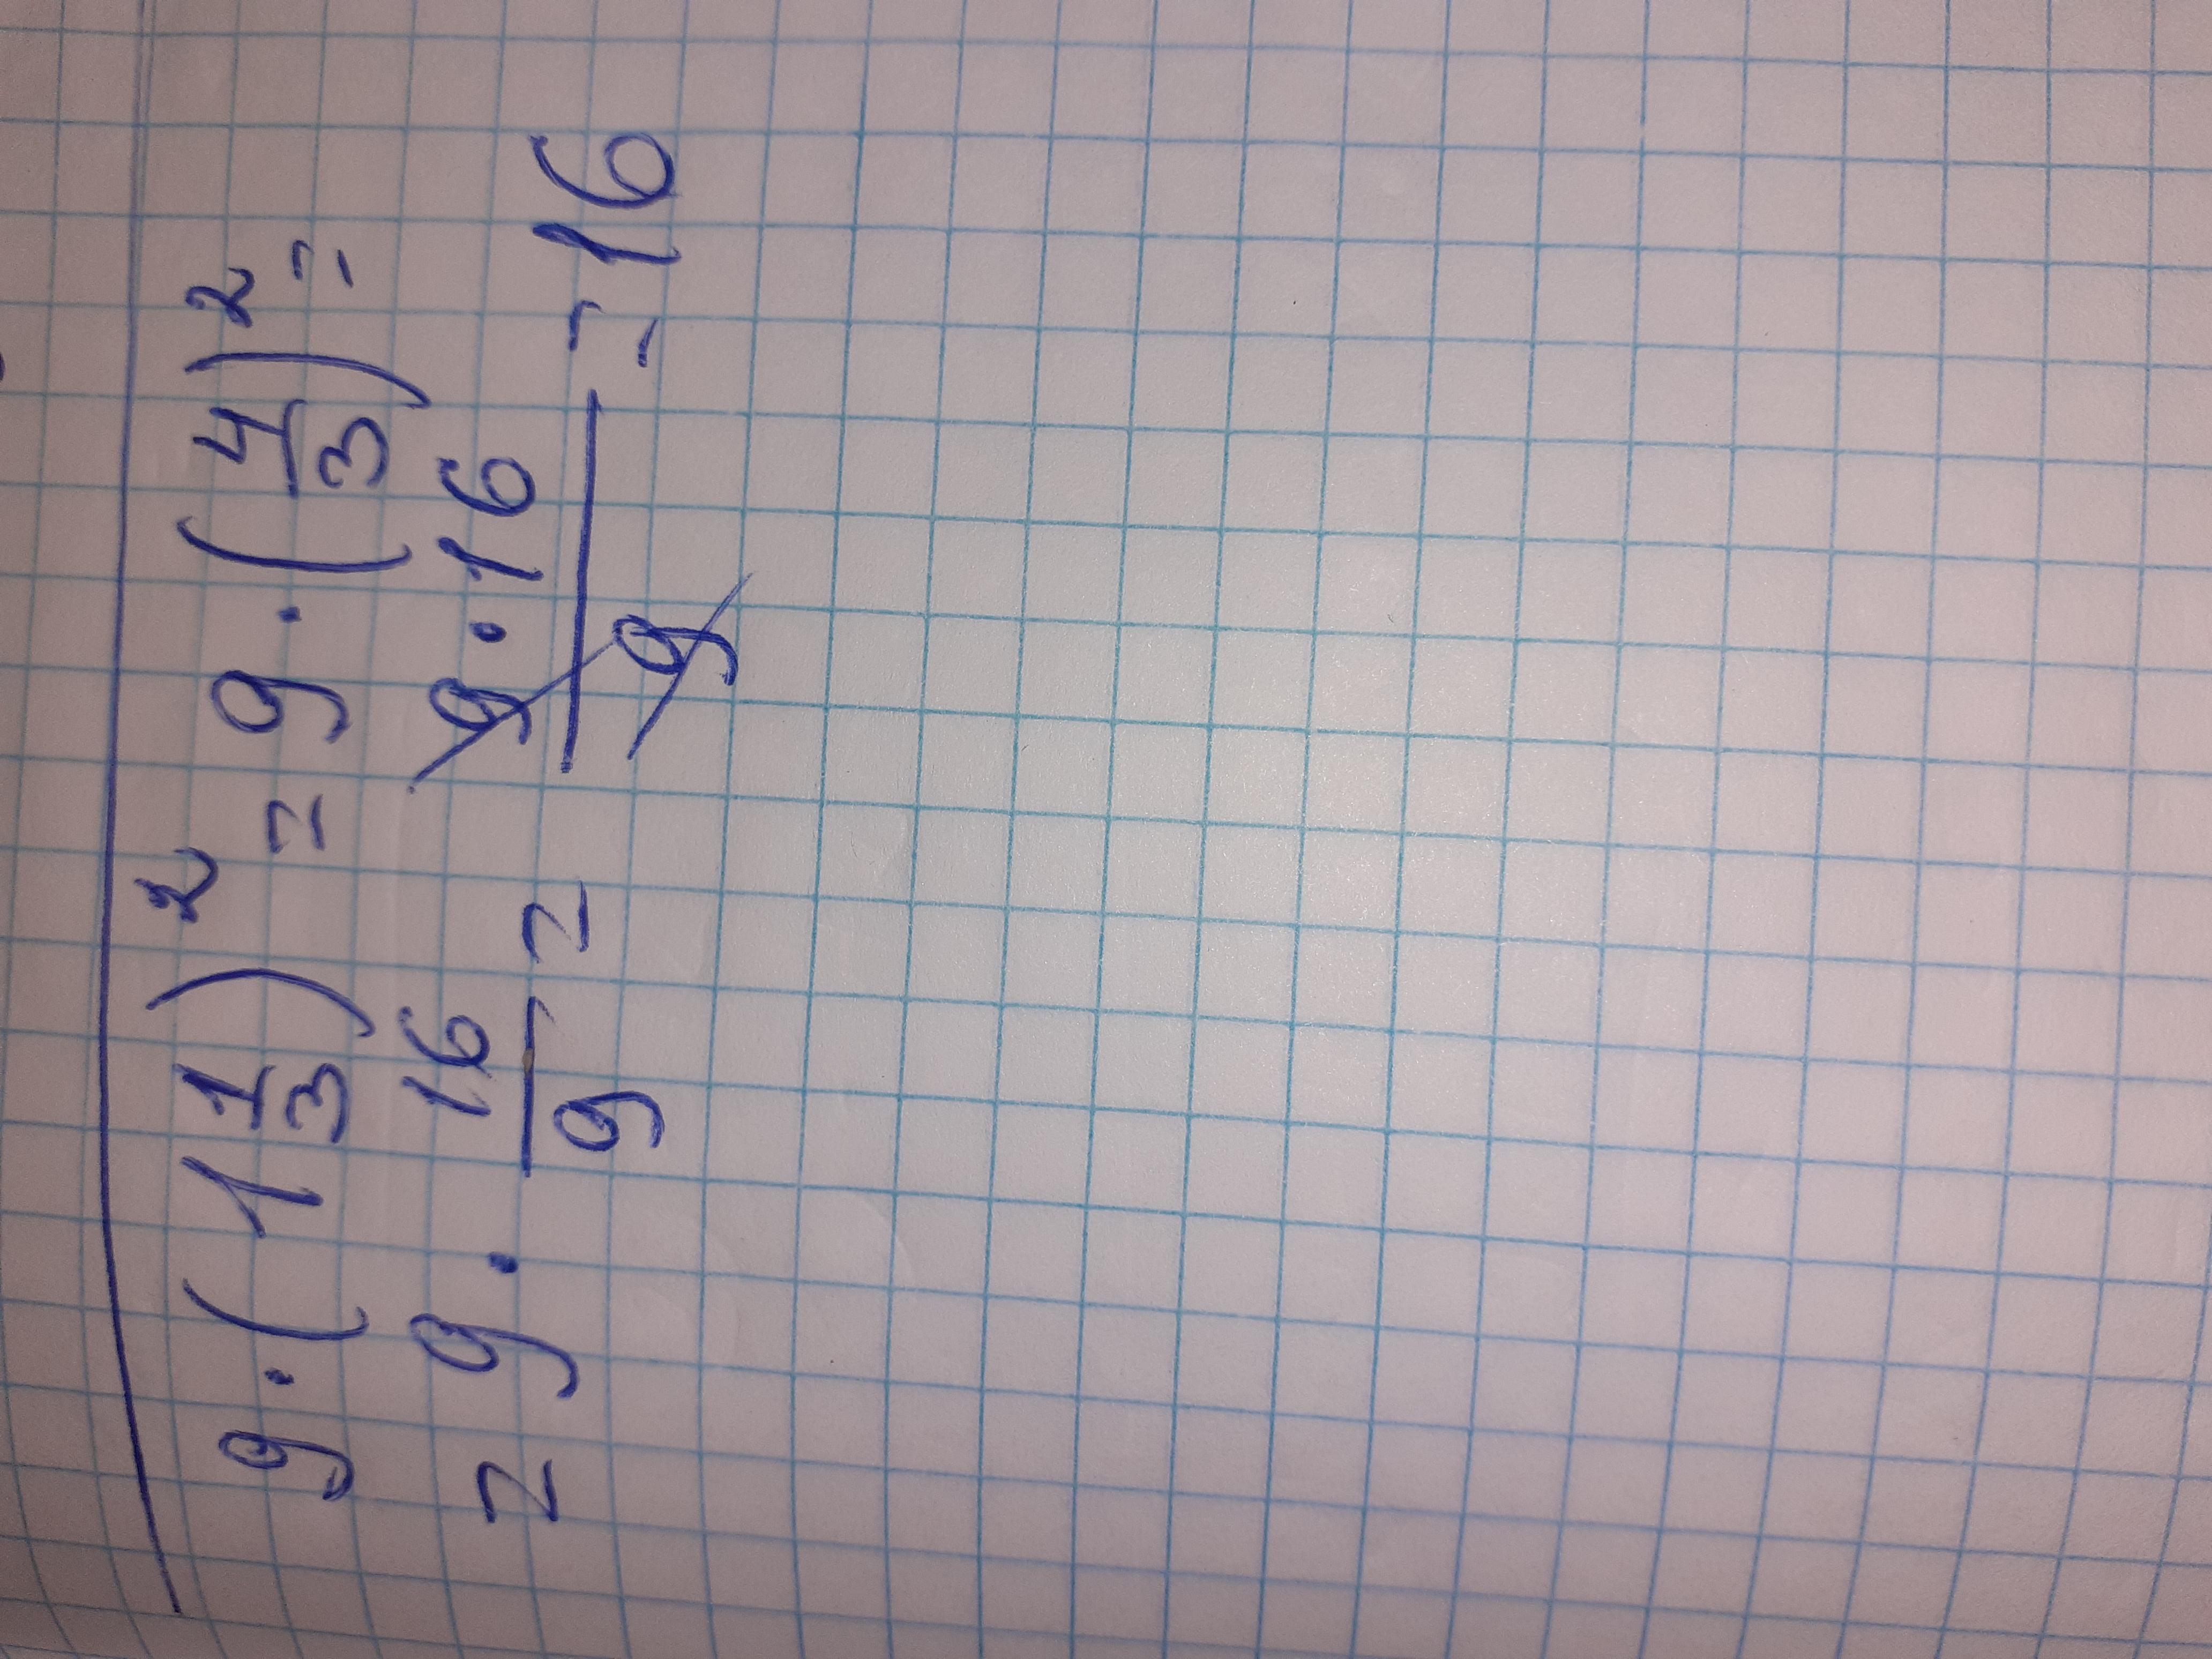 9 · (1 1/3)² = 9 · (4/3)² =
= 9 · 16/9 = 9 · 16/9 = 16